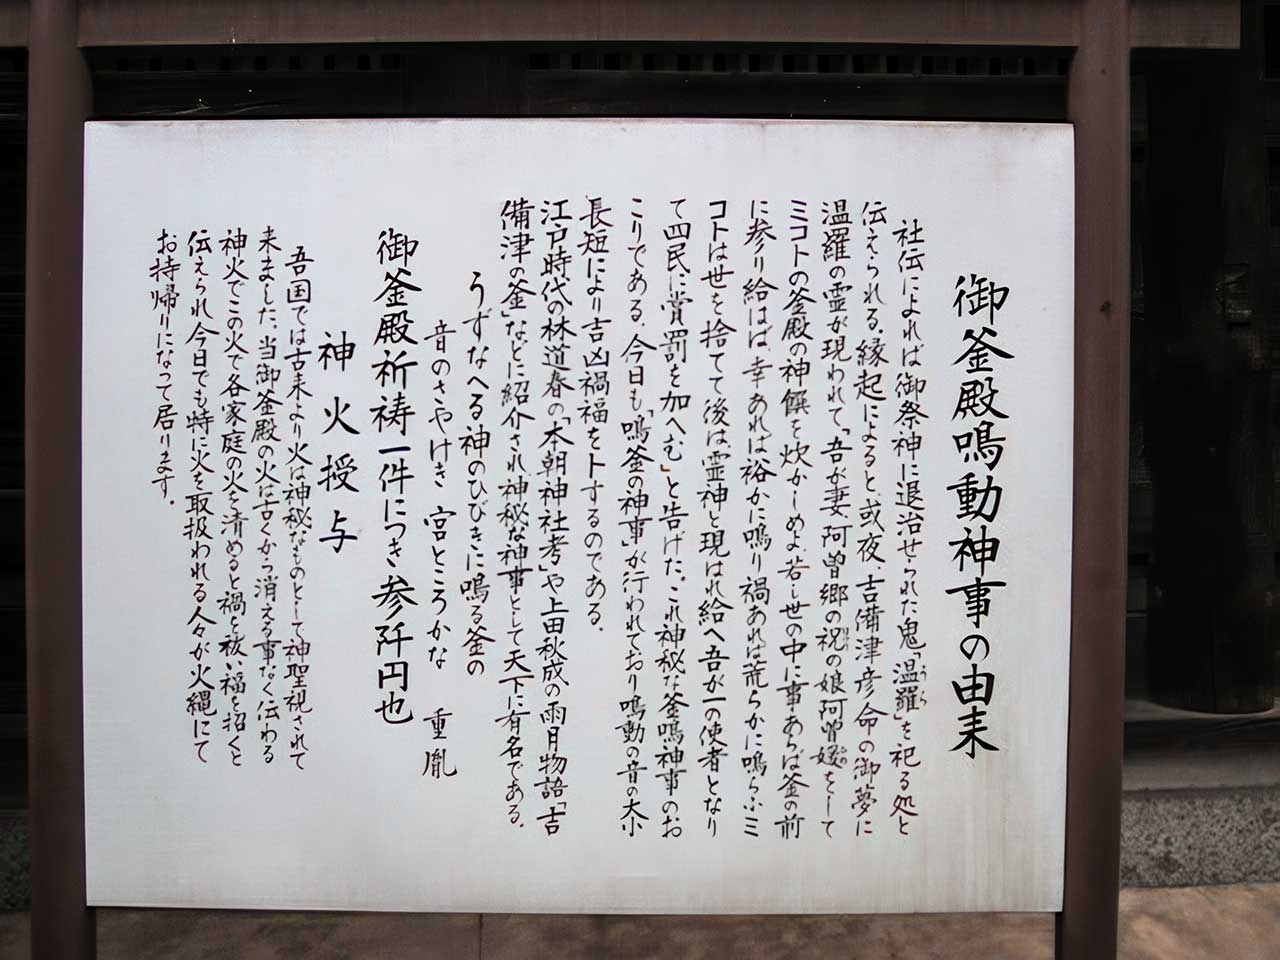 御釜殿鳴動神事の由来
社伝によれば御祭神に退治せられた鬼「温羅」を祀る処と
うら
伝えられる。縁起によると、或夜、吉備津彦命の御夢に
温羅の霊が現われて「吾が妻、阿曽郷の祝の娘阿曽媛をして
ミコトの釜殿の神饌を炊かしめよ、若し世の中に事あらば釜の前
に参り給はば、幸あれば裕かに鳴り禍あれば荒らかに鳴らふミ
コトは世を捨てて後は、霊神と現はれ給へ吾が一の使者となり
て四民に賞罰を加へむ」と告げた。これ神秘な釜鳴神事のお
こりである。今日も「鳴釜の神事」が行われており鳴動の音の大小
長短により吉凶禍福をトするのである。
江戸時代の林道春の「本朝神社考」や上田秋成の雨月物語「吉
備津の釜」などに紹介され、神秘な神事として天下に有名である。
うずなへる神のひびきに鳴る釜の
音のさやけき宮ところかな 重胤
御釜殿祈祷一件につき参阡円也
神火授与
吾国では古来より火は神秘なものとして神聖視されて
来ました。当御釜殿の火は古くから消える事なく伝わる
神火でこの火で各家庭の火を清めると禍を祓い福を招くと
伝えられ今日でも特に火を取扱われる人々が火縄にて
お持帰りになって居ります。